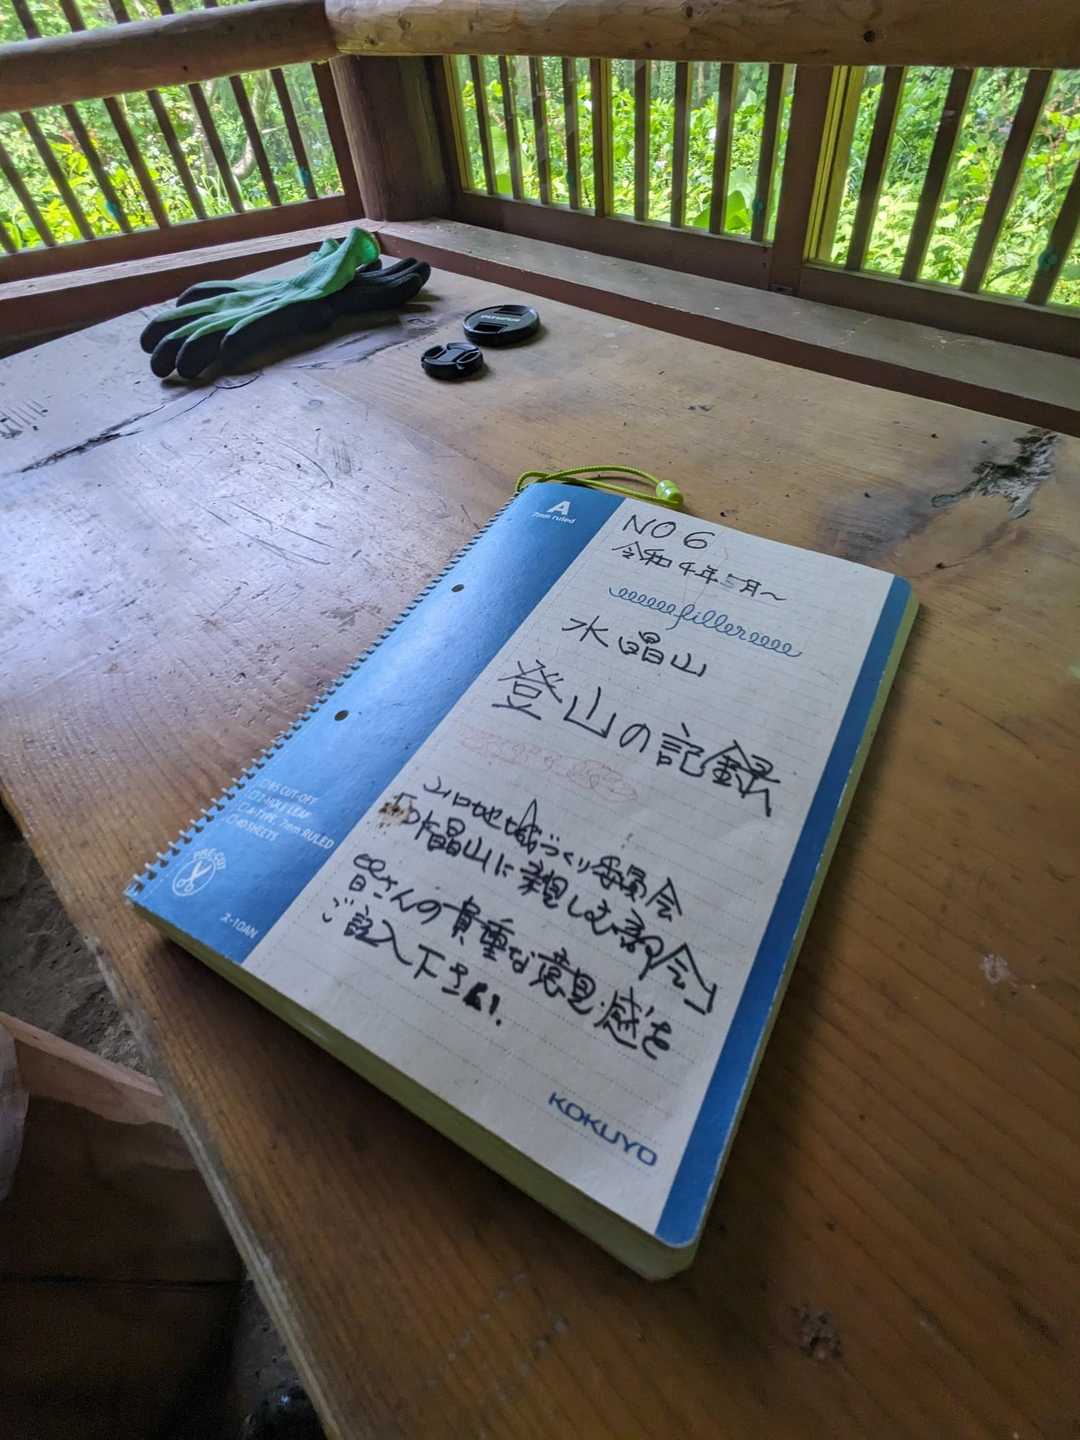 A
7mm ruled
NO 6
令和4年5月～
filler
水晶山
登山の記録
山口地域づくり委員会
「水晶山に親しむ部会」
皆さんの貴重な意見・感を
ご記入下さい.
CUT-OFF
2-HOLE LEAF
A-TYPE, 7mm RULED
40 SHEETS
ス-10AN
KOKUYO
OLYMPUS